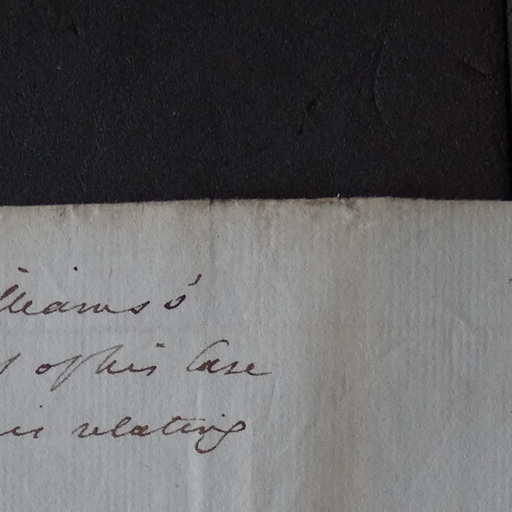 lliams's
of his Case
relating